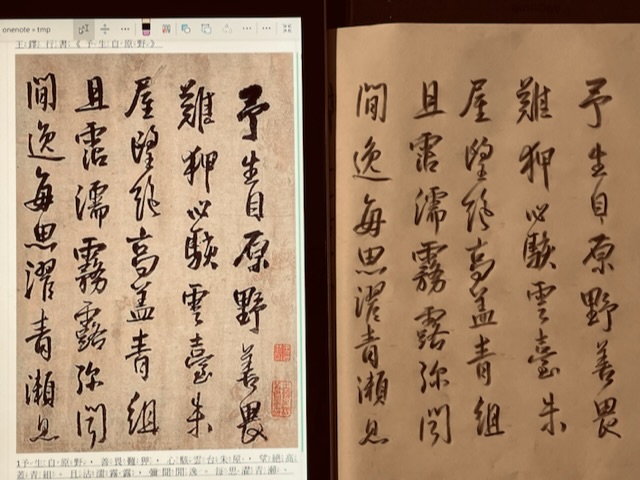 onenote - tmp
王鐸 行書《予生自原野》
予生自原野善畏
難狎必駭雲臺朱
屋望絕高蓋青組
且霑濡霧露弥聞
閒逸每思濯青瀨息
1予生自原野，善畏難狎，心駭雲台朱屋，望絕高
蓋青組，且沾濡霧露，彌聞閒逸，每思濯青瀨，
予生自原野善畏
難狎必駭雲臺朱
屋望絕高蓋青組
且霑濡霧露弥聞
閒逸每思濯青瀨息